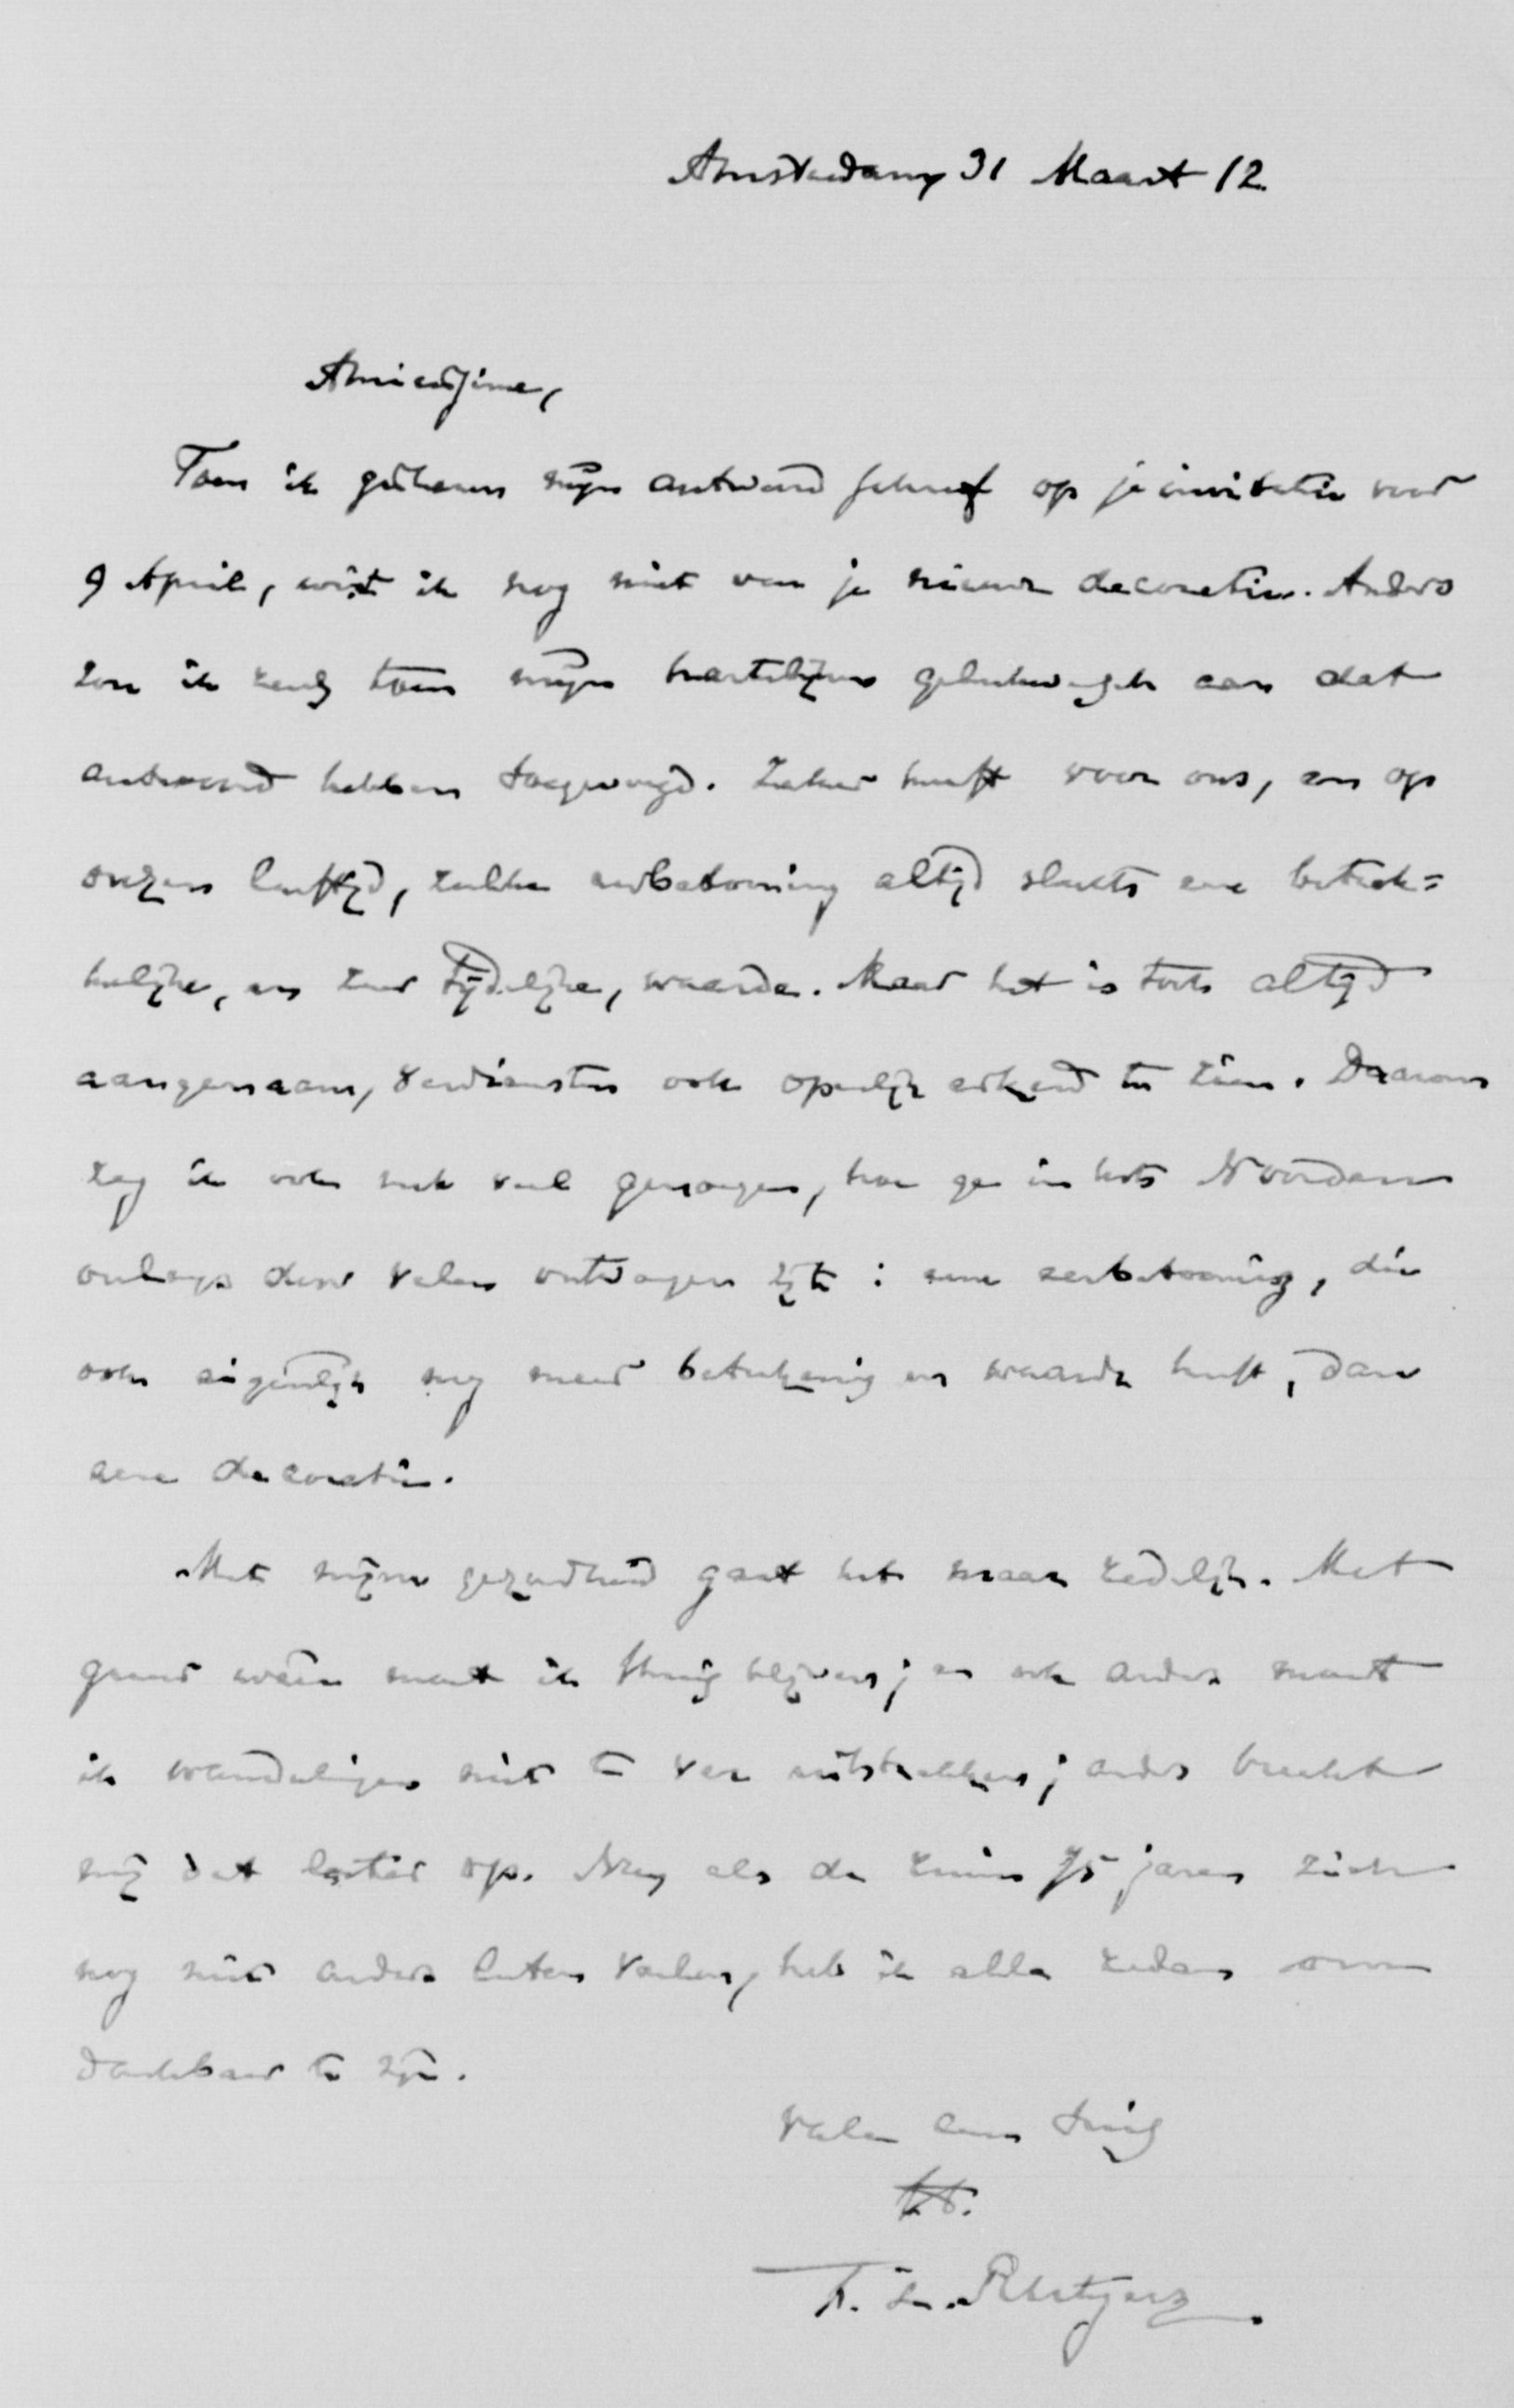 Amsterdam 31 Maart 12.
Amicissime,
Toen ik gisteren mijn antwoord schreef op je invitatie voor
9 April, wist ik nog niet van je nieuwe decoratie. Anders
zou ik reeds toen mijn hartelijken gelukwensch aan dat
antwoord hebben toegevoegd. Zeker heeft voor ons, en op
onzen leeftijd, zulke eerbetooning altijd slechts eene betrek=
kelijke, en zeer tijdelijke, waarde. Maar het is toch altijd
aangenaam, verdiensten ook openlijk erkend te zien. Daarom
zag ik ook met veel genoegen, hoe ge in het Noorden
onlangs door velen ontvangen zijt : eene eerbetooning, die
ook eigenlijk nog meer beteekenis en waarde heeft, dan
eene decoratie.
Met mijne gezondheid gaat het maar redelijk. Met
guur weer moet ik thuis blijven; en ook anders moet
ik wandelingen niet te ver uitstrekken; anders breekt
mij dat later op. Nog als de ruim 75 jaren zich
nog niet anders laten voelen, heb ik alle reden om
dankbaar te zijn.
Vale cum tuis
tt.
F. L. Rutgers